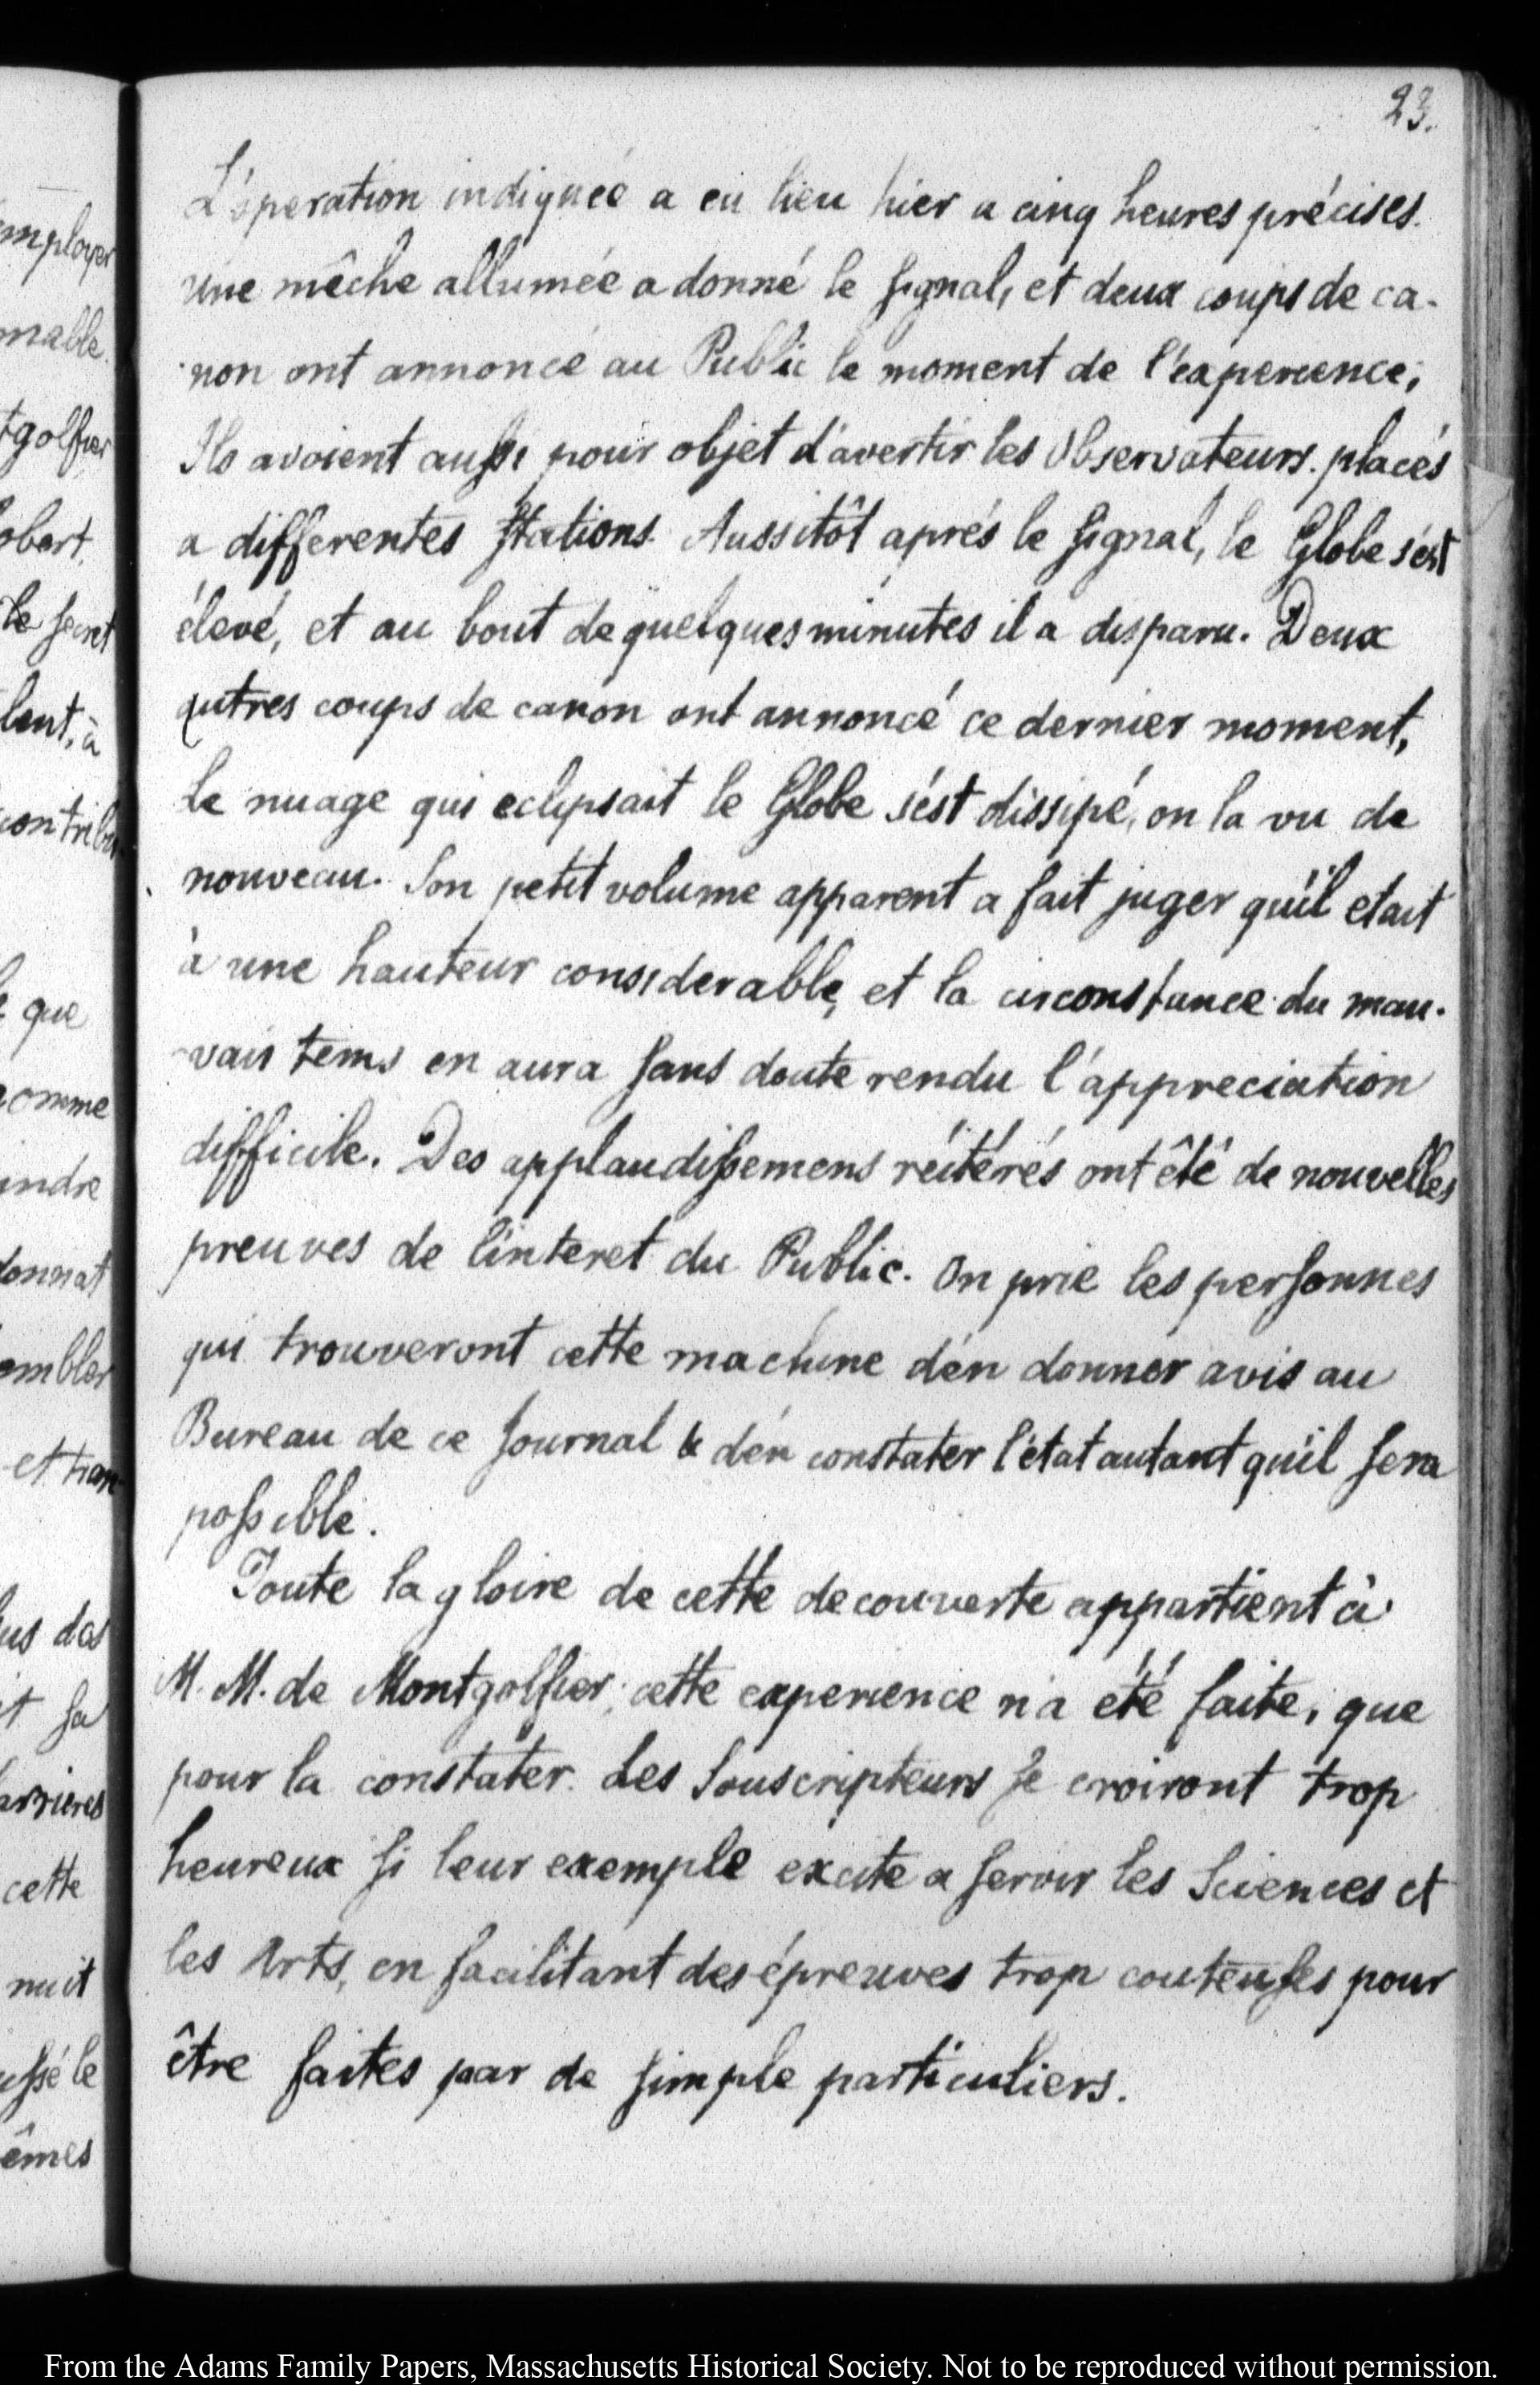 23.
L'óperation indiqnée a eu lieu hier a cinq heures précises.
une mêche allumée a donné le signal, et deux coups de ca-
non ont annoncé au Public le moment de l'éxperience;
Ils avoient aussi pour objet d'avertir les Observateurs placés
a differentes stations. Aussitôt aprés le signal, le Globe s'ést
élevé, et au bout de quelques minutes il a disparu. Deux
autres coups de canon ont annoncé ce dernier moment,
le nuage qui eclipsait le Globe s'ést dissipé, on la vu de
nouveau. Son petit volume apparent a fait juger qu'il etait
à une hauteur considerable, et la circonstance du mau-
vais tems en aura sans doute rendu l'appreciation
difficile. Des applaudissemens réitérés ont êté de nouvelles
preuves de l'interet du Public. On prie les personnes
qui trouveront cette machine d'én donner avis au
Bureau de ce Journal & d'én constater l'état autant qu'il sera
possible.
Toute la gloire de cette decouverte appartient à
M. M. de Montgolfier; cette experience n'a été faite, que
pour la constater. Les Souscripteurs se croiront trop
heureux si leur exemple excite a servir les Sciences et
les Arts, en facilitant des épreuves trop couteuses pour
être faites par de simple particuliers.
mployer
mable.
tgolfier
obert
le secret
lent, à
contribu
que
comme
indre
donnat
embler
et tran-
us des
it sa
arrieres
cette
nuit
ussé le
êmes
From the Adams Family Papers, Massachusetts Historical Society. Not to be reproduced without permission.